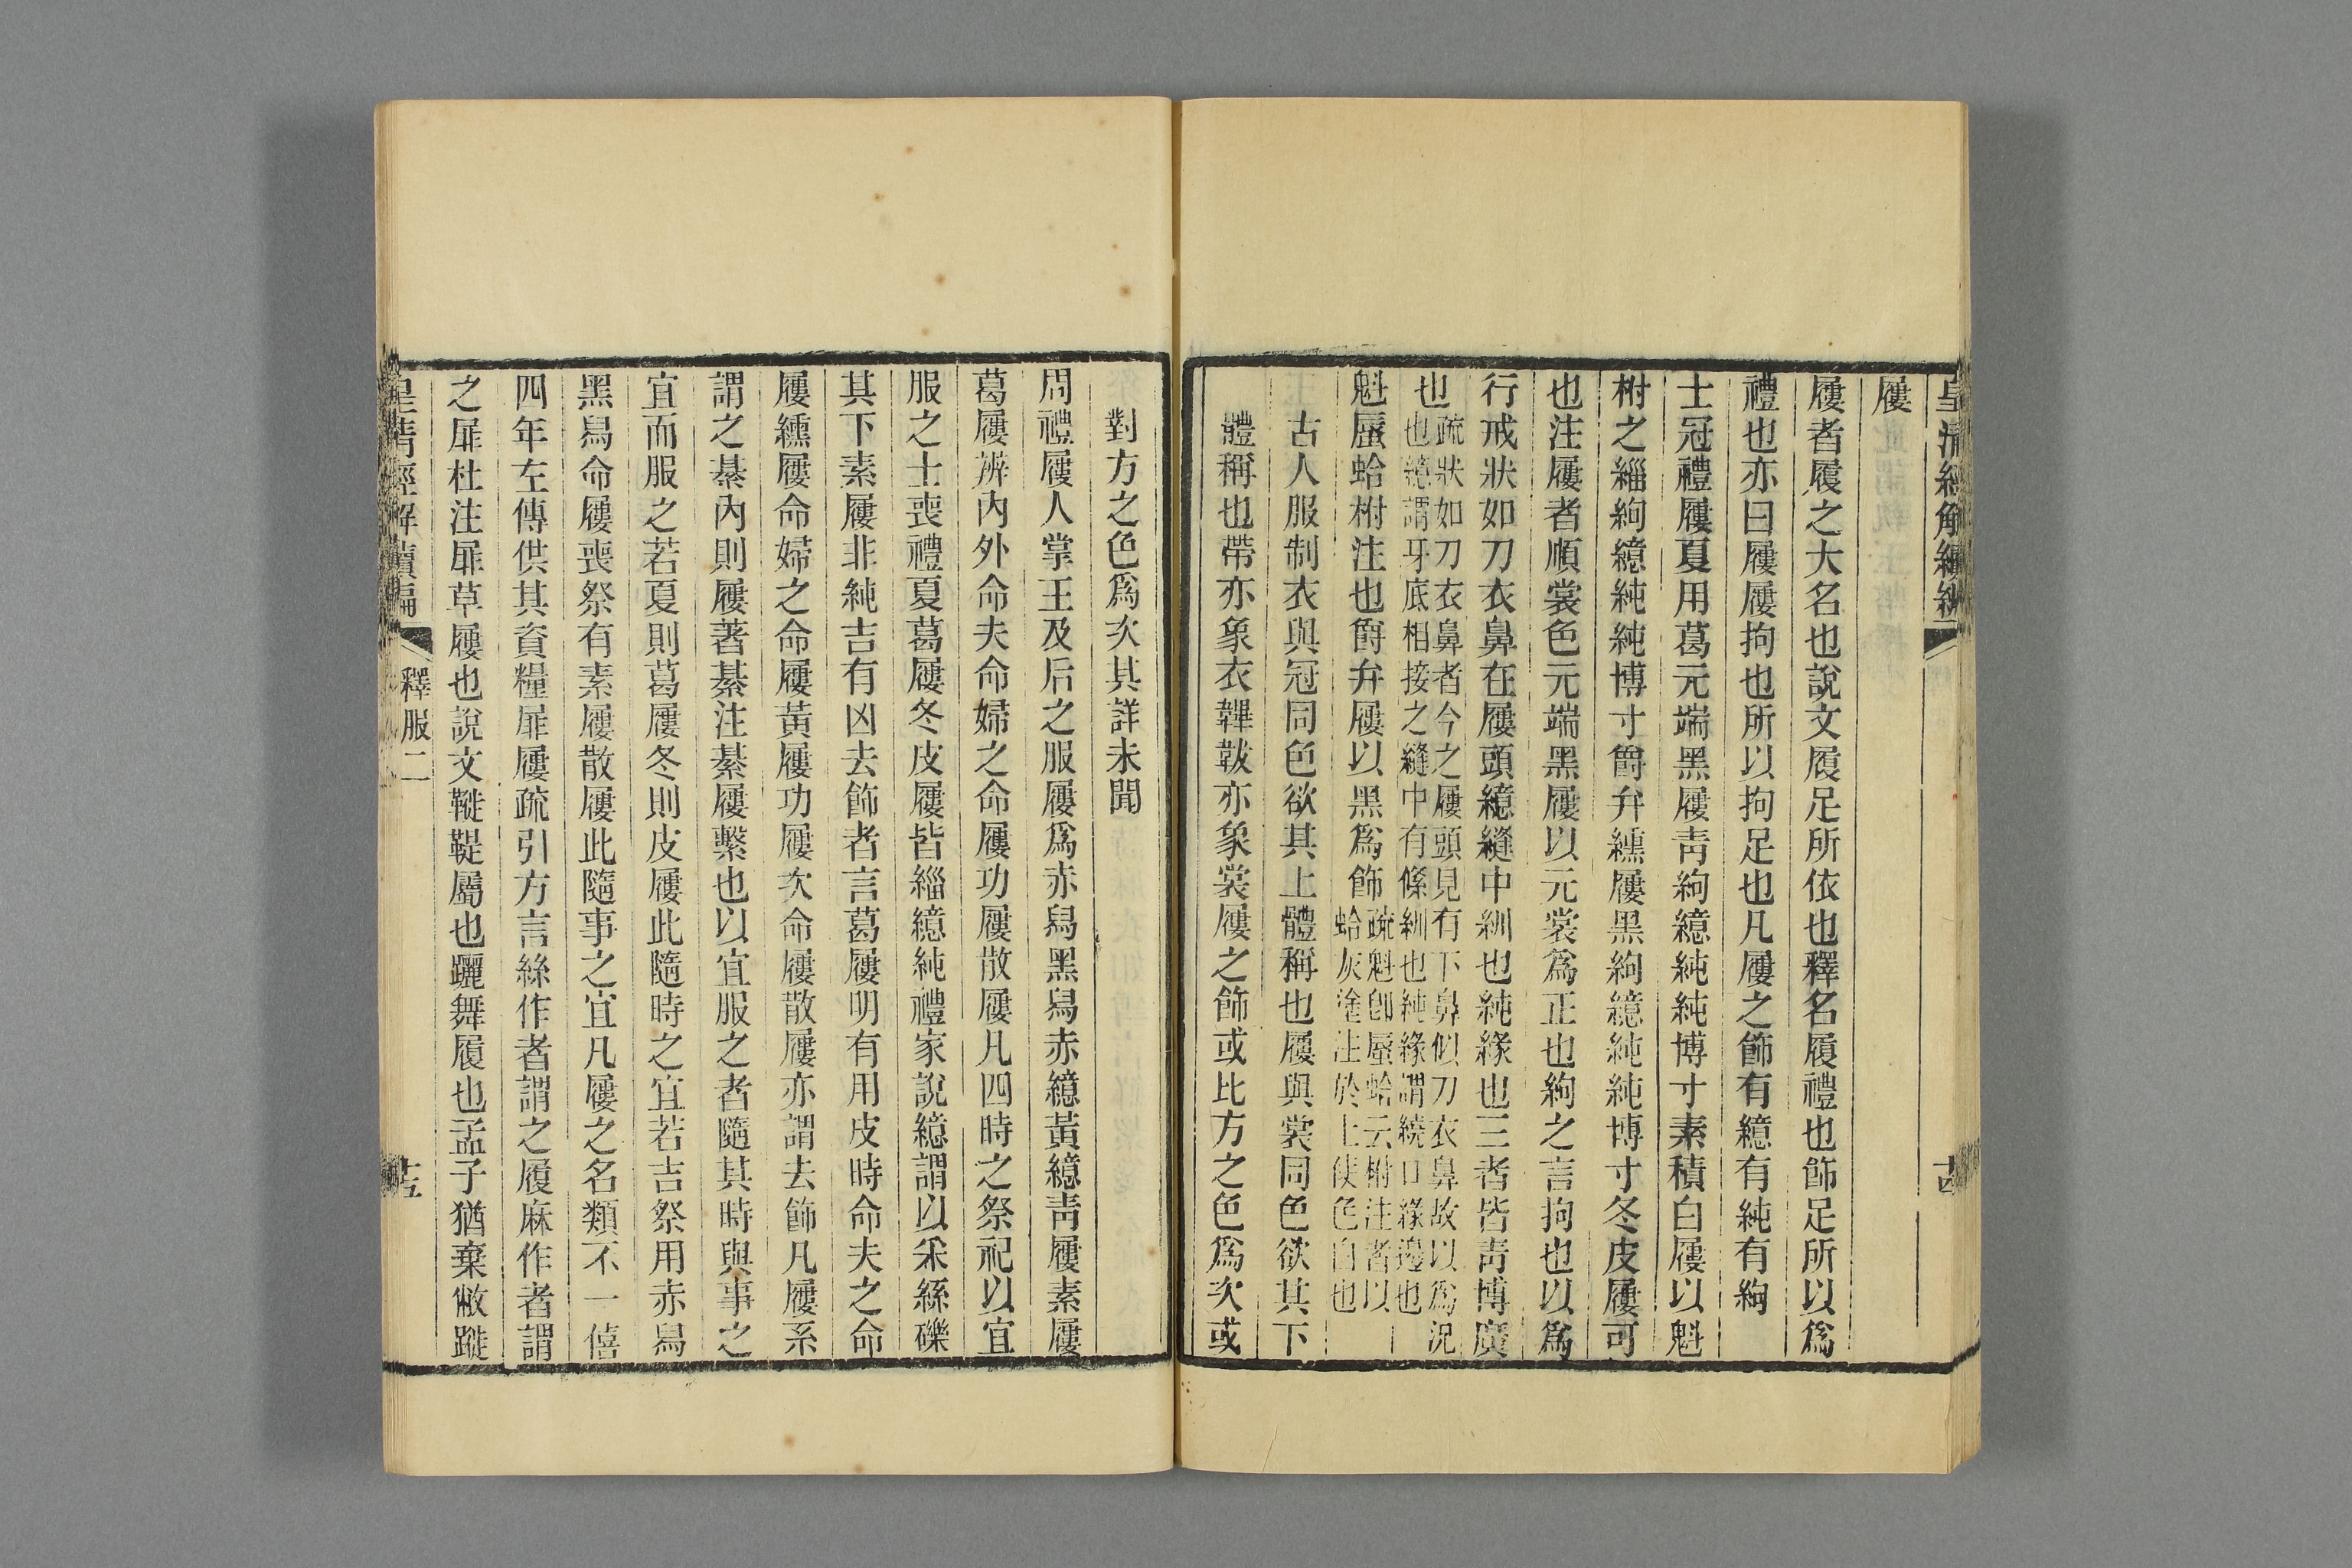 屨
屨者履之大名也說文履足所依也釋名履禮也飾足所以爲
禮也亦曰屨屨拘也所以拘足也凡屨之飾有繶有純有絇
士冠禮屨夏用葛元端黑屨靑絇繶純純博寸素積白屨以魁
柎之緇絇繶純純博寸爵弁纁屨黑絇繶純純博寸冬皮屨可
也注屨者順裳色元端黑屨以元裳爲正也絇之言拘也以爲
行戒狀如刀衣鼻在屨頭繶縫中紃也純緣也三者皆靑博廣
也疏狀如刀衣鼻者今之屨頭見有下鼻似刀衣鼻故以爲況
也繶謂牙底相接之縫中有絛紃也純緣謂繞口緣邊也
魁蜃蛤柎注也爵弁屨以黑爲飾疏魁卽蜃蛤云柎注者以
蛤灰塗注於上使色白也
古人服制衣與冠同色欲其上體稱也屨與裳同色欲其下
體稱也帶亦象衣韠韍亦象裳屨之飾或比方之色爲次或
對方之色爲次其詳未聞
周禮屨人掌王及后之服屨爲赤舄黑舄赤繶黃繶靑屨素屨
葛屨辨內外命夫命婦之命屨功屨散屨凡四時之祭祀以宜
服之士喪禮夏葛屨冬皮屨皆緇繶純禮家說繶謂以采絲礫
其下素屨非純吉有凶去飾者言葛屨明有用皮時命夫之命
屨纁屨命婦之命屨黃屨功屨次命屨散屨亦謂去飾凡屨系
謂之綦內則屨著綦注綦屨繫也以宜服之者隨其時與事之
宜而服之若夏則葛屨冬則皮屨此隨時之宜若吉祭用赤舄
黑舄命屨喪祭有素屨散屨此隨事之宜凡屨之名類不一僖
四年左傳供其資糧屝屨疏引方言絲作者謂之履麻作者謂
之屝杜注屝草屨也說文鞮鞮屬也躧舞履也孟子猶棄敝蹝
皇淸經解續編
釋服二
十五